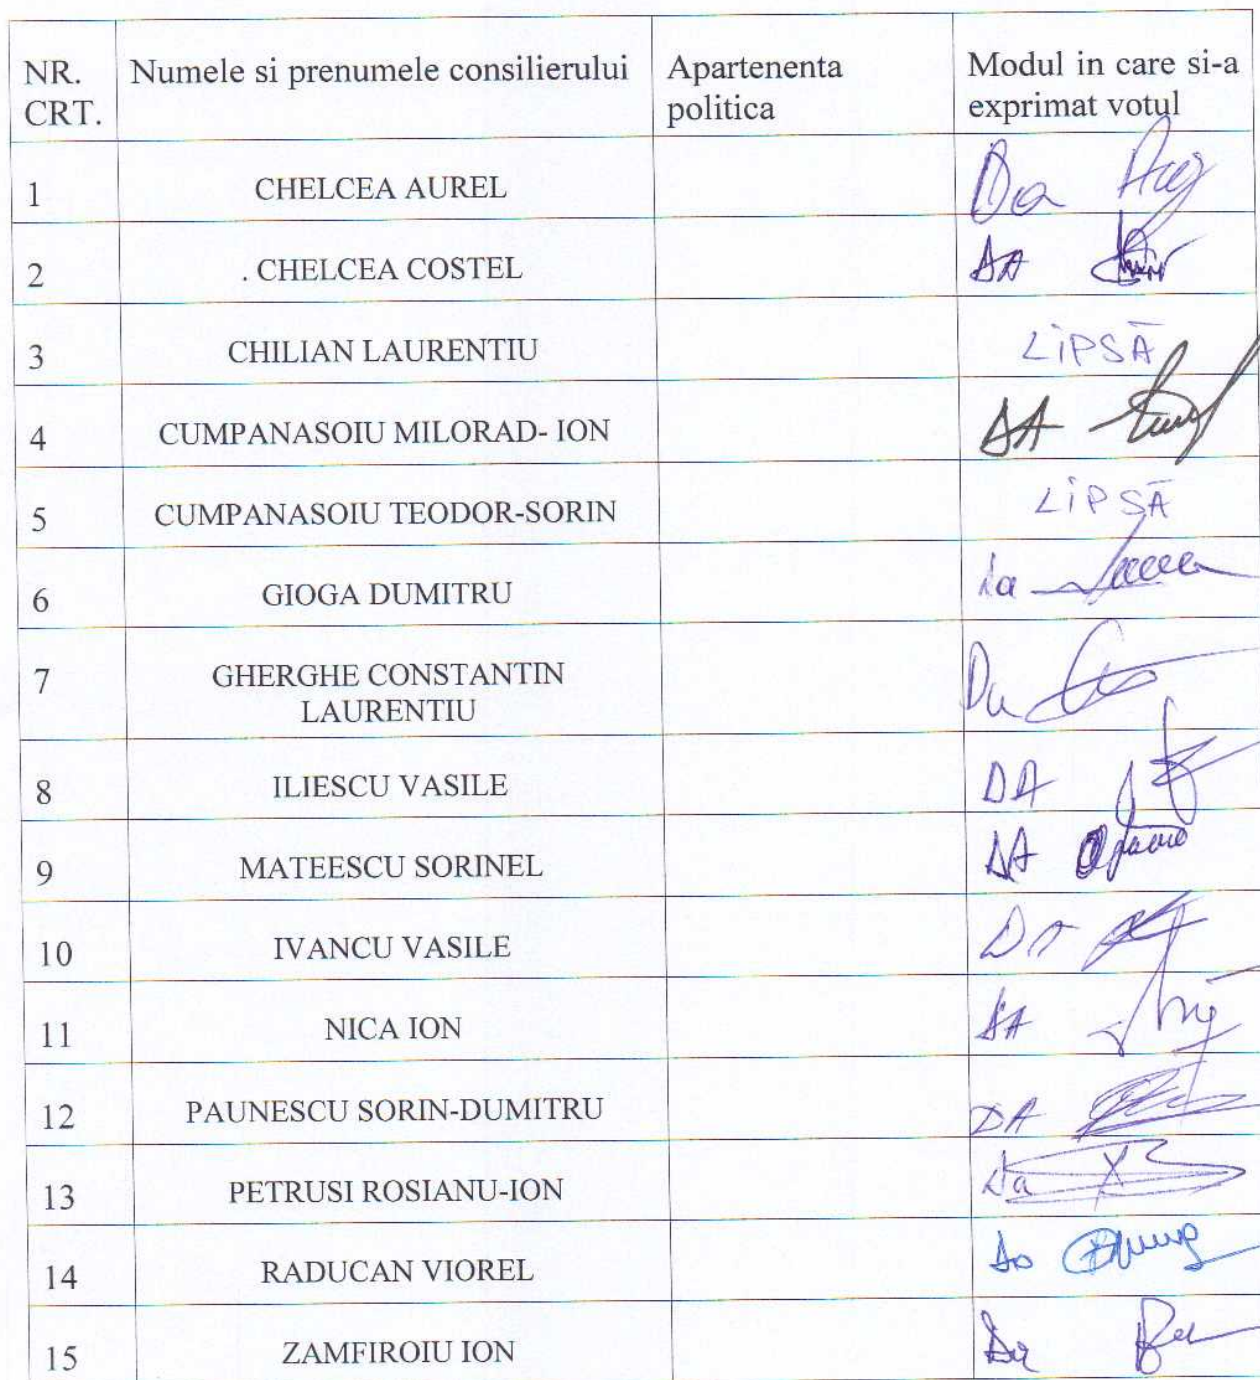 NR. CRT. Numele si prenumele consilierului Apartenenta politica Modul in care si-a exprimat votul
1 CHELCEA AUREL Da
2 . CHELCEA COSTEL DA
3 CHILIAN LAURENTIU LIPSĂ
4 CUMPANASOIU MILORAD- ION DA
5 CUMPANASOIU TEODOR-SORIN LIPSĂ
6 GIOGA DUMITRU Da
7 GHERGHE CONSTANTIN LAURENTIU Da
8 ILIESCU VASILE DA
9 MATEESCU SORINEL DA
10 IVANCU VASILE DA
11 NICA ION DA
12 PAUNESCU SORIN-DUMITRU DA
13 PETRUSI ROSIANU-ION Da
14 RADUCAN VIOREL Da
15 ZAMFIROIU ION Da